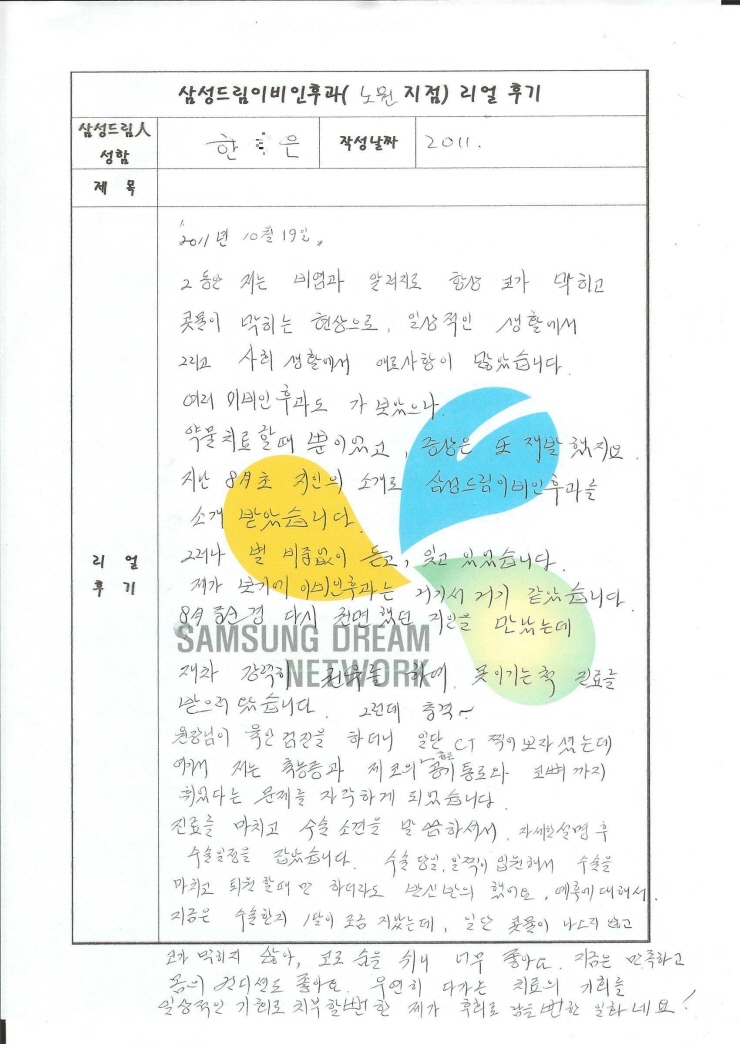 삼성드림이비인후과( 노원 지점) 리얼 후기
삼성드림人 성함
한 은
작성날짜
2011.
제 목
리 얼 후 기
2011년 10월 19일.
그동안 저는 비염과 알러지로 항상 코가 막히고
콧물이 막히는 현상으로, 일상적인 생활에서
그리고 사회 생활에서 애로사항이 많았습니다.
여러 이비인후과도 가 보았으나
약물치료 할때 뿐이었고, 증상은 또 재발 했지요.
지난 8月초 지인의 소개로 삼성드림이비인후과를
소개 받았습니다.
그러나 별 비중없이 듣고, 잊고 있었습니다.
제가 보기에 이비인후과는 거기서 거기 같았습니다.
8月 중순경 다시 전면했던 지인을 만났는데
SAMSUNG DREAM
NETWORK
재차 강력히 권유를 하여. 못이기는척 진료를
받으러 갔습니다. 그런데 충격~
원장님이 육안 검진을 하더니 일단 CT 찍어보자 셨는데
여기서 저는 축농증과 제 코의 공기통로와 코뼈까지
휘었다는 문제를 자각하게 되었습니다.
진료를 마치고 수술 소견을 말씀하셔서. 자세한 설명 후
수술일정을 잡았습니다. 수술 당일, 일찍이 입원해서 수술을
마치고 퇴원 할때 만 하더라도 반신반의 했어요. 예후에 대해서.
지금은 수술한지 1달이 조금 지났는데, 일단 콧물이 나오지 않고
코가 막히지 않아, 코로 숨을 쉬니 너무 좋아요. 지금은 만족하고
몸의 컨디션도 좋아요. 우연히 다가온 치료의 기회를
일상적인 기회로 치부할뻔 한 제가 후회로 남을뻔한 일화네요!